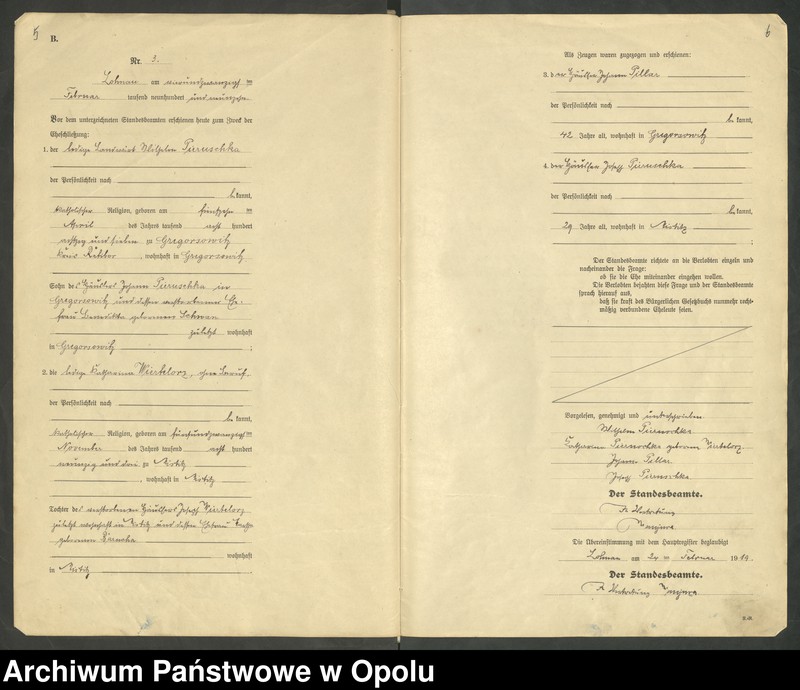 5
B.
Nr. 3.
Lohnau am vierundzwanzigsten
Februar tausend neunhundert und neunzehn
Vor dem unterzeichneten Standesbeamten erschienen heute zum Zweck der
Eheschließung:
1. der ledige Landwirt Wilhelm Pieruschka
der Persönlichkeit nach
be kannt,
katholischer Religion, geboren am fünfzehn ten
April des Jahres tausend acht hundert
achtzig und sieben zu Gregorsowitz
Kreis Ratibor, wohnhaft in Gregorsowitz
Sohn des Häuslers Johann Pieruschka in
Gregorsowitz und dessen verstorbenen Ehe-
frau Benedikta geborenen
zuletzt wohnhaft
in Gregorsowitz ;
2. die ledige Katharina Wiertelorz, ohne Beruf
der Persönlichkeit nach
be kannt,
katholischer Religion, geboren am fünfundzwanzigsten
November des Jahres tausend acht hundert
neunzig und drei zu
, wohnhaft in
Tochter des verstorbenen Häuslers Josef Wiertelorz
zuletzt wohnhaft in und dessen Ehefrau
geborenen
wohnhaft
in
6
Als Zeugen waren zugezogen und erschienen:
3. der Häusler Johann Pillar
der Persönlichkeit nach
be kannt,
42 Jahre alt, wohnhaft in Gregorsowitz
4. der Häusler Josef Pieruschka
der Persönlichkeit nach
be kannt,
29 Jahre alt, wohnhaft in
;
Der Standesbeamte richtete an die Verlobten einzeln und
nacheinander die Frage:
ob sie die Ehe miteinander eingehen wollen.
Die Verlobten bejahten diese Frage und der Standesbeamte
sprach hierauf aus,
daß sie kraft des Bürgerlichen Gesetzbuchs nunmehr recht-
mäßig verbundene Eheleute seien.
Vorgelesen, genehmigt und unterschrieben
Wilhelm Pieruschka
Katharina Pieruschka geborene Wiertelorz
Johann Pillar
Josef Pieruschka
Der Standesbeamte.
In Vertretung
Die Übereinstimmung mit dem Hauptregister beglaubigt
Lohnau am 24 ten Februar 1919.
Der Standesbeamte.
In Vertretung
Archiwum Państwowe w Opolu